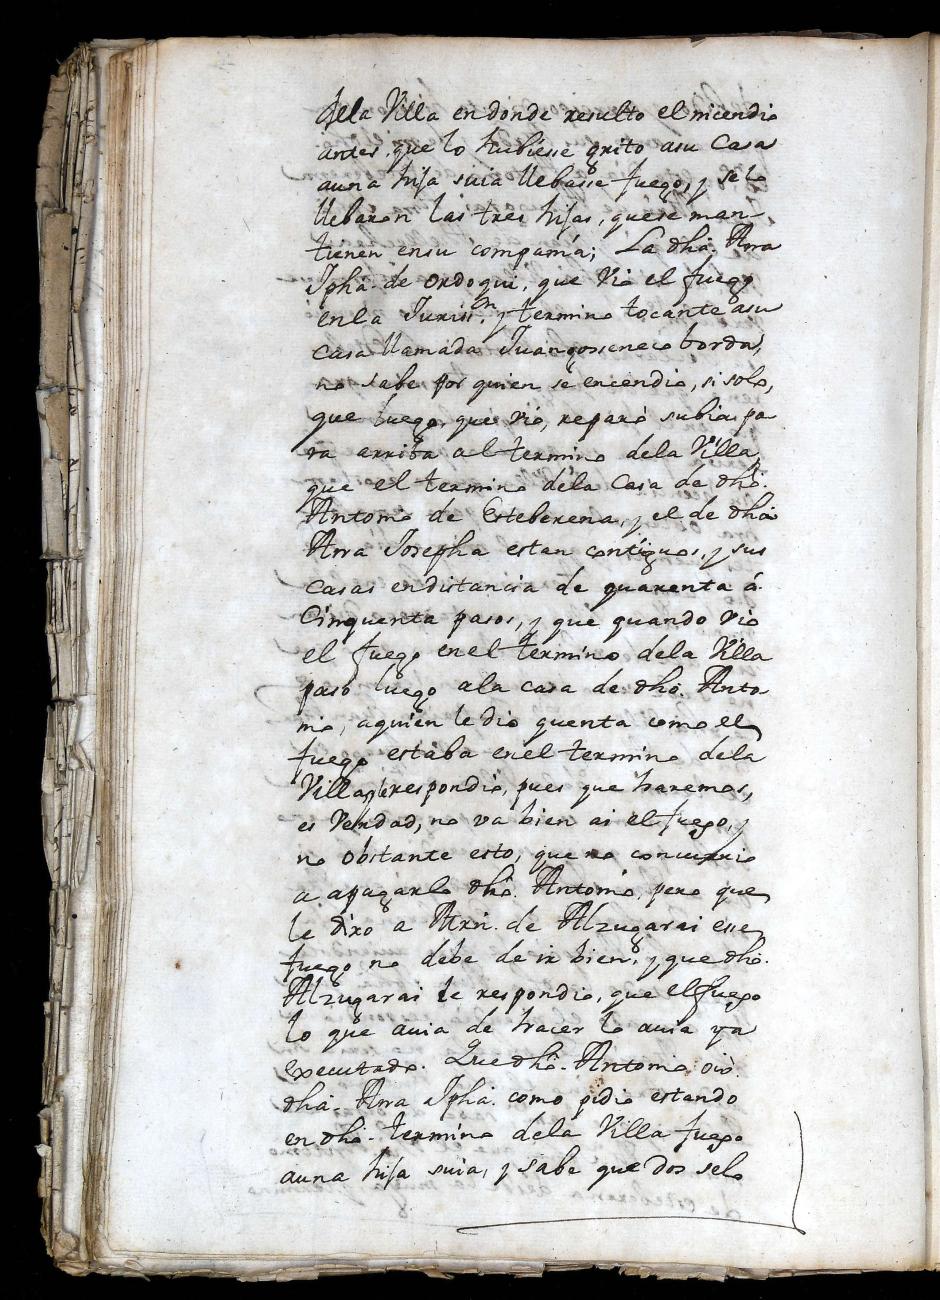 dela Villa en donde resulto el incendio
antes, que lo hubiesse grito asu Casa
auna hija suia llebasse fuego, y se lo
llebaron las tres hijas, que se man-
tienen ensu compama; La dha. Anna
Jpha. de ordoqui, que vio el fuego
enla Jurisson. y termino tocante asu
casa llamada Juangosseneco borda,
no sabe por quien se encendio, si solo,
que luego, que vió, reparó subia pa
ra arriba al termino dela Villa,
que el termino dela Casa de dho.
Antonio de Esteberena, y el de dha
Anna Josepha estan contiguos, y sus
casas endistancia de quarenta á
Cinquenta pasos, y que quando vio
el fuego enel termino dela Villa
paso luego ala casa de dho. Anto-
nio, aquien le dio quenta como el
fuego estaba enel termino dela
Villa, respondio, pues que haremos,
es Verdad, no va bien ai el fuego, y
no obstante esto, que no concurrio
a apagarlo dho. Antonio, pero que
le dixo a Mrn. de Alzugarai esse
fuego no debe de ir bien, y que dho.
Alzugarai le respondio, que el fuego
lo que auia de hacer lo auia ya
executado. Que dho. Antonio oió.
dha. Anna Jpha. como pidio estando
en dho. termino dela Villa fuego
auna hija suia, y sabe que dos selo